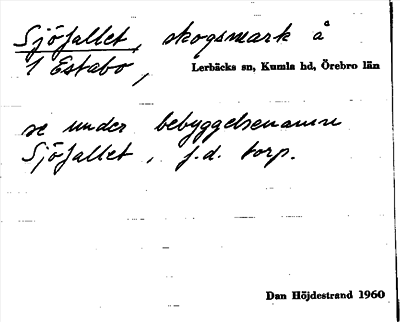 Sjöfallet, skogsmark å
1 Estabo,
Lerbäcks sn, Kumla hd, Örebro län
se under bebyggelsenamn
Sjöfallet, f.d. torp.
Dan Höjdestrand 1960